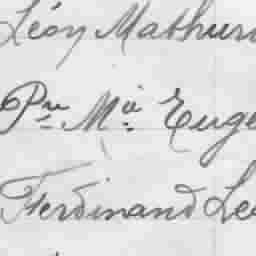 Léon Mathuri
Pre Mie Euge
Ferdinand Le